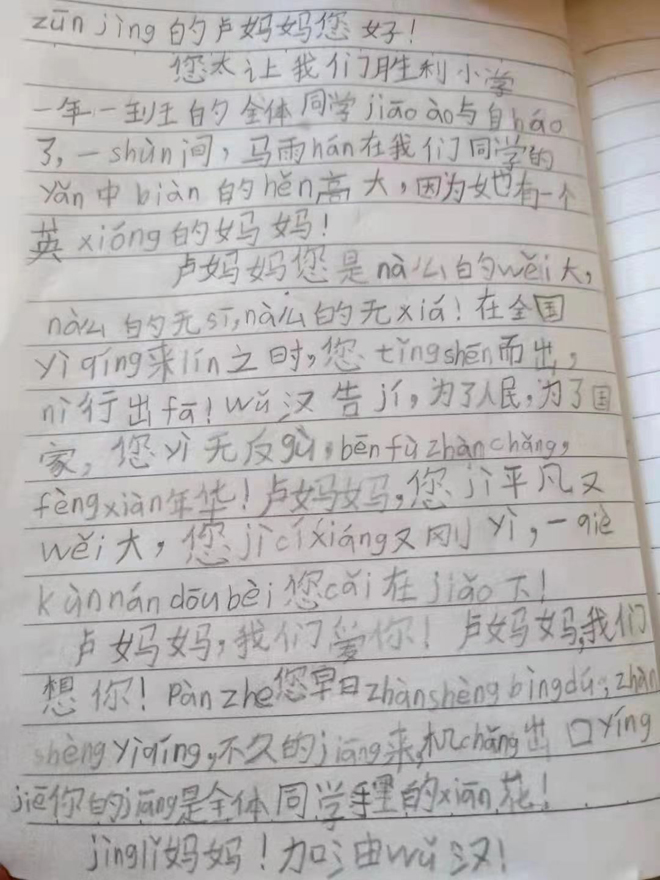 zūn jìng的卢妈妈您好！
您太让我们胜利小学
一年一班的全体同学jiāo ào与自háo
了，一shùn间，马雨hán在我们同学的
yǎn中biàn的hěn高大，因为她也有一个
英xióng的妈妈！
卢妈妈您是nà么的wěi大，
nà么的无sī，nà么的无xiá！在全国
yì qíng来lín之时，您tǐng shēn而出，
nì行出fā！wǔ汉告jí，为了人民，为了国
家，您yì无反gù，bēn fù zhàn chǎng，
fèng xiàn年华！卢妈妈，您jì平凡又
wěi大，您jì cí xiáng又刚yì，一qiè
kùn nán dōu bèi您cǎi在jiǎo下！
卢妈妈，我们爱你！卢妈妈，我们
想你！pàn zhe您早日zhàn shèng bìng dú；zhàn
shèng yì qíng，不久的jiāng来，机chǎng出口yíng
jiē你的jiāng是全体同学手里的xiān花！
jìng lǐ妈妈！加油wǔ汉！